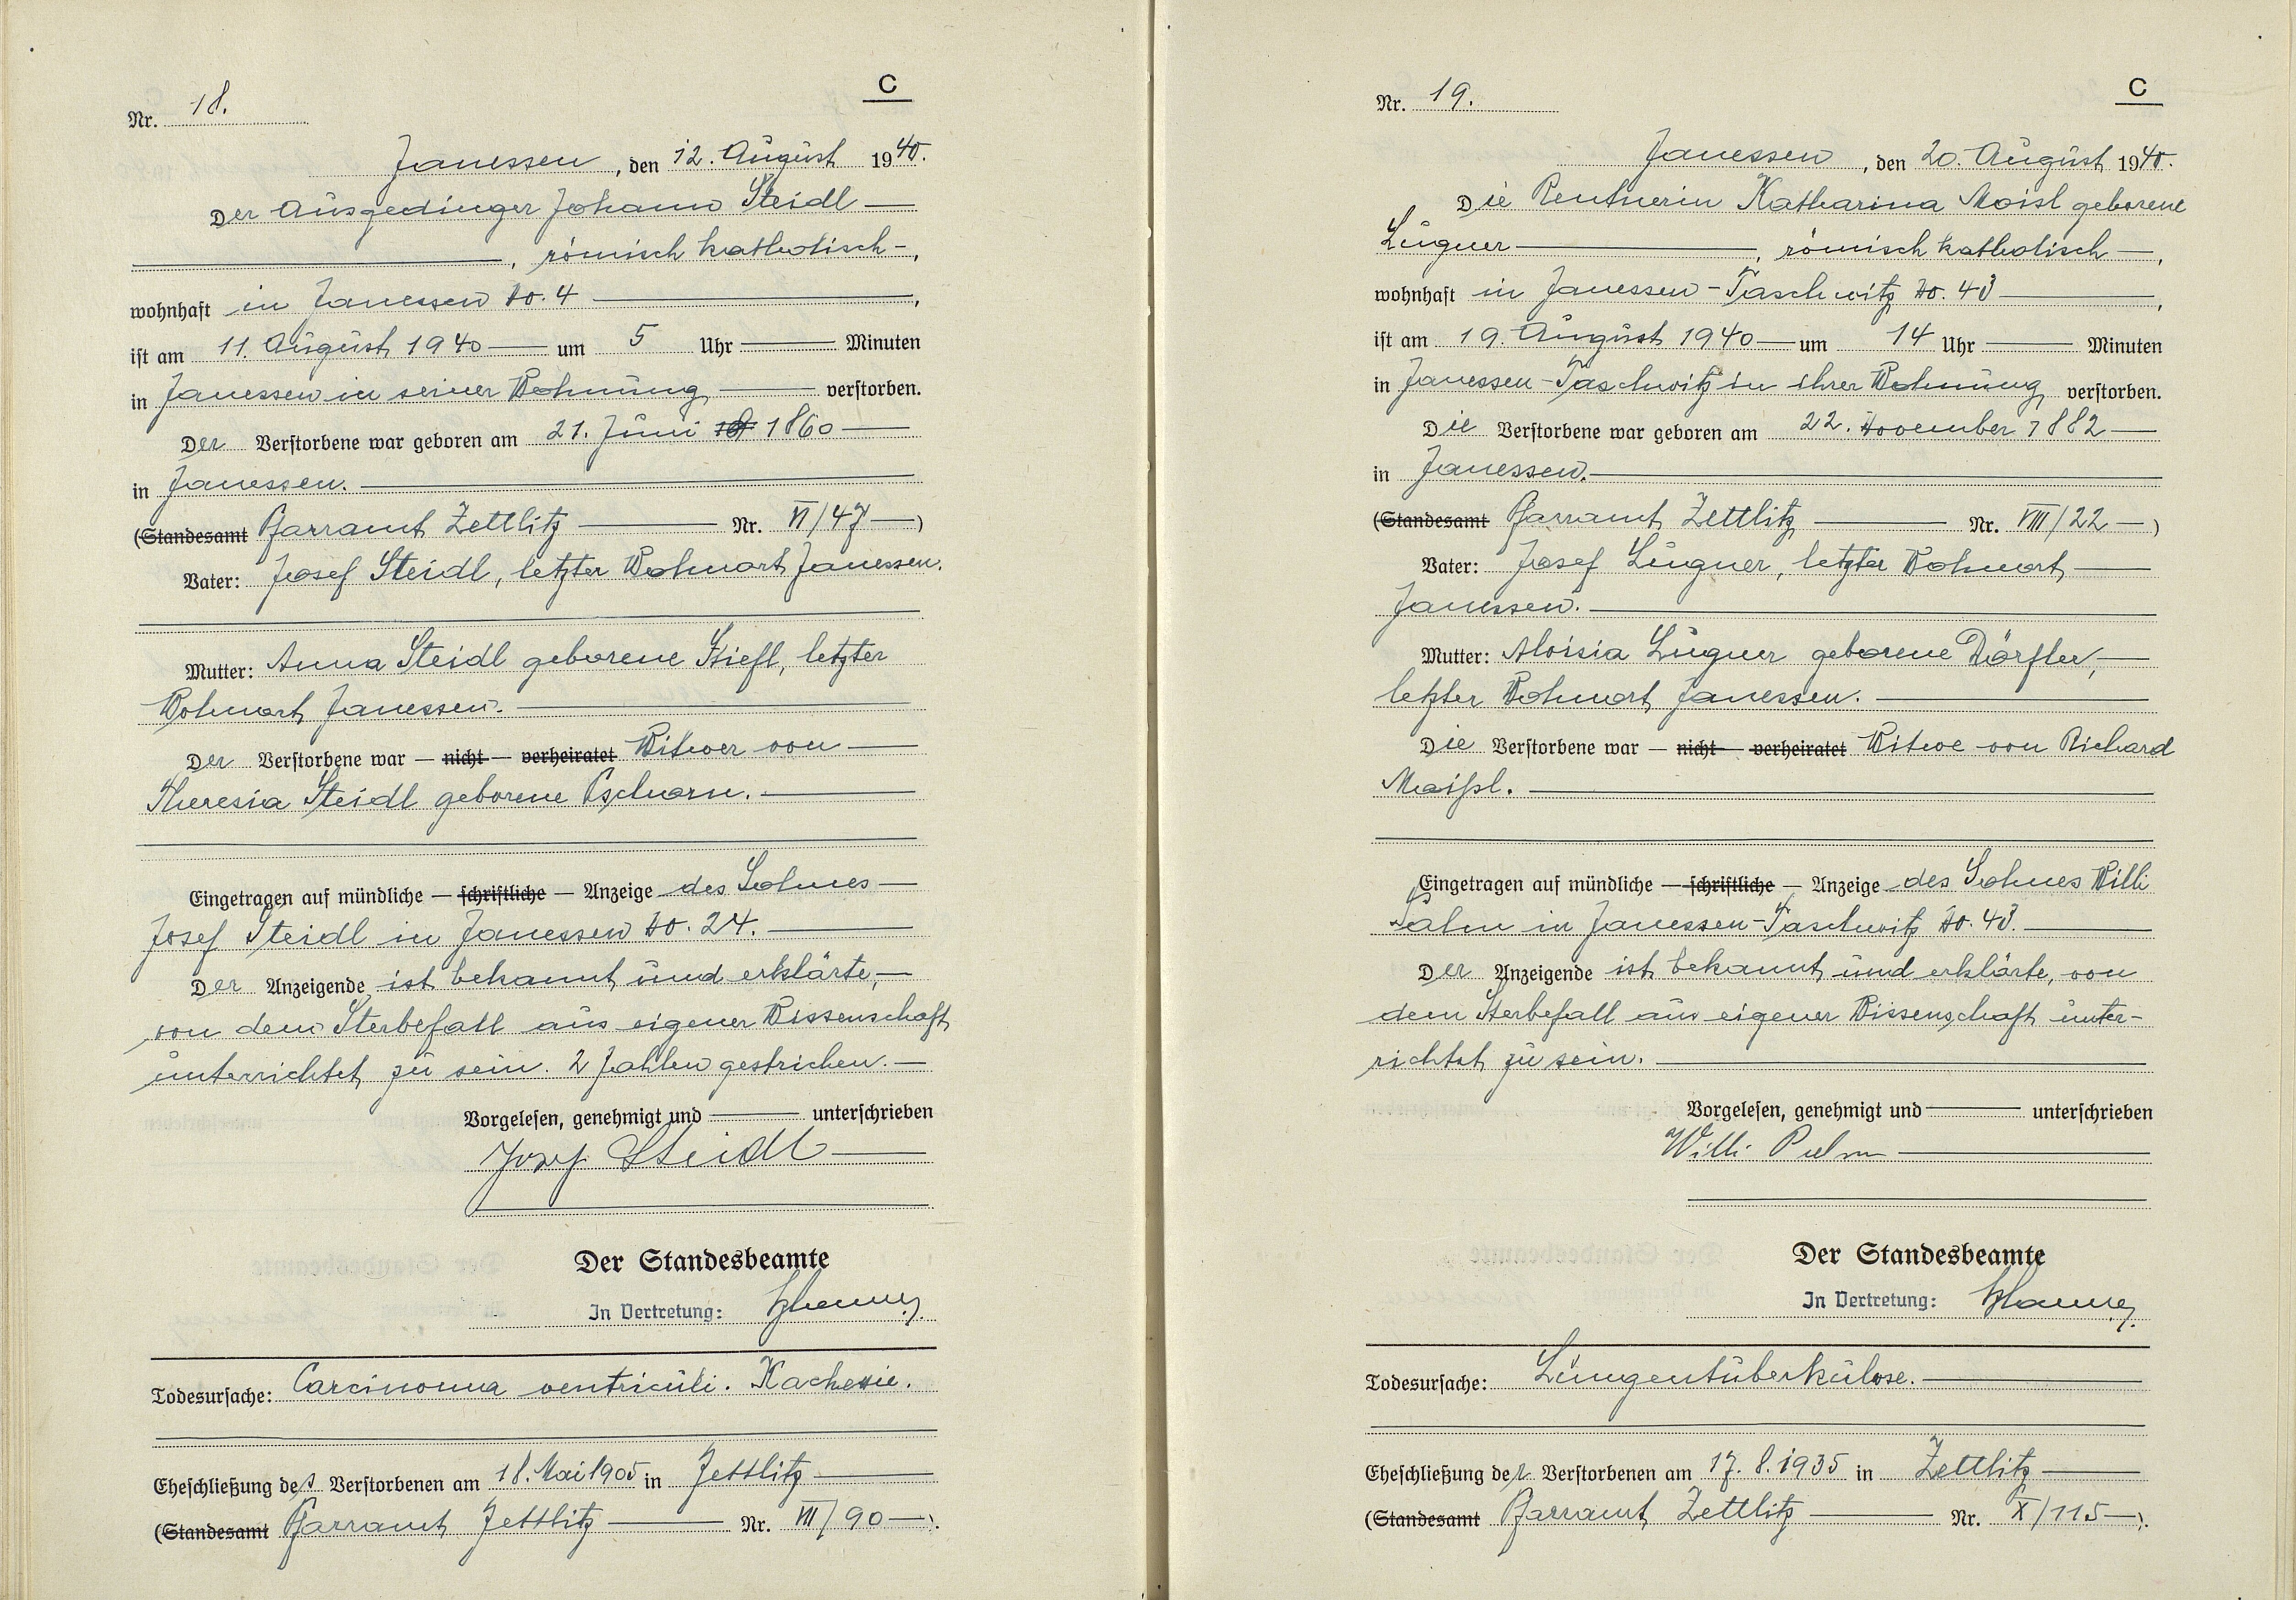 C
Nr. 18.
Janessen, den 12. August 1940.
Der Ausgedinger Johann Steidl
, römisch katholisch,
wohnhaft in Janessen No. 4,
ist am 11. August 1940 um 5 Uhr Minuten
in Janessen in seiner Wohnung verstorben.
Der Verstorbene war geboren am 21. Juni 1860
in Janessen.
(Standesamt Pfarramt Zettlitz Nr. VI/47)
Vater: Josef Steidl, letzter Wohnort Janessen.
Mutter: Anna Steidl geborene letzter
Wohnort Janessen.
Der Verstorbene war — nicht — verheiratet Witwer von
Theresia Steidl geborene
Eingetragen auf mündliche — schriftliche — Anzeige des Sohnes
Josef Steidl in Janessen No. 24.
Der Anzeigende ist bekannt und erklärte,
von dem Sterbefall aus eigener Wissenschaft
unterrichtet zu sein. 2 Zahlen gestrichen.
Vorgelesen, genehmigt und unterschrieben
Josef Steidl
Der Standesbeamte
In Vertretung:
Todesursache: Carcinoma ventriculi. Kachexie.
Eheschließung des Verstorbenen am 18. Mai 1905 in Zettlitz
(Standesamt Pfarramt Zettlitz Nr. VII/90).
C
Nr. 19.
Janessen, den 20. August 1940.
Die Rentnerin Katharina Moisl geborene
Lugner, römisch katholisch,
wohnhaft in Janessen-Taschwitz No. 43,
ist am 19. August 1940 um 14 Uhr Minuten
in Janessen-Taschwitz in ihrer Wohnung verstorben.
Die Verstorbene war geboren am 22. November 1882
in Janessen.
(Standesamt Pfarramt Zettlitz Nr. VIII/22)
Vater: Josef Lugner, letzter Wohnort
Janessen.
Mutter: Aloisia Lugner geborene Dörfler,
letzter Wohnort Janessen.
Die Verstorbene war — nicht — verheiratet Witwe von Richard
Maißl.
Eingetragen auf mündliche — schriftliche — Anzeige des Sohnes Willi
in Janessen-Taschwitz No. 43.
Der Anzeigende ist bekannt und erklärte, von
dem Sterbefall aus eigener Wissenschaft unter-
richtet zu sein.
Vorgelesen, genehmigt und unterschrieben
Willi
Der Standesbeamte
In Vertretung:
Todesursache: Lungentuberkulose.
Eheschließung der Verstorbenen am 17. 8. 1935 in Zettlitz
(Standesamt Pfarramt Zettlitz Nr. X/115).